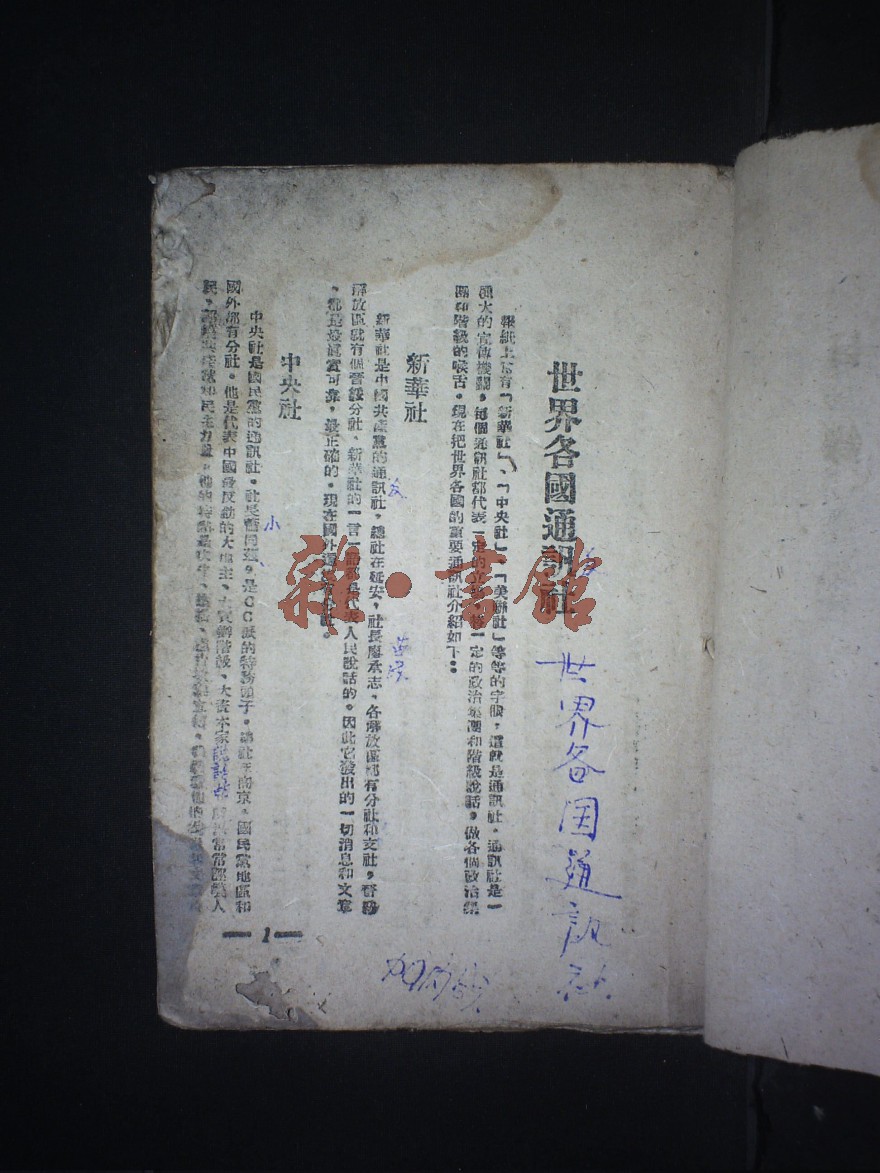 世界各國通訊社
世界各国通訊社
報紙上常有「新華社」、「中央社」、「美聯社」等等的字個,這就是通訊社。通訊社是一
種大的宣傳機關,每個通訊社都代表一定的立場,替一定的政治集團和階級說話,做各個政治集
團和階級的喉舌。現在把世界各國的重要通訊社介紹如下:
新華社
新華社是中國共產黨的通訊社,總社在延安,社長廖承志,各解放區都有分社和支社,晉綏
解放區就有個晉綏分社。新華社的一言一語都是代表人民說話的。因此它發出的一切消息和文章
,都是最真實可靠,最正確的。現在國外
中央社
中央社是國民黨的通訊社。社長蕭同茲,是CC派的特務頭子。總社在南京,國民黨地區和
國外都有分社。他是代表中國最反動的大地主、大買辦階級、大資本家說話的 常常誣衊人
民、共產黨和民主力量。
小
1
雜·書館